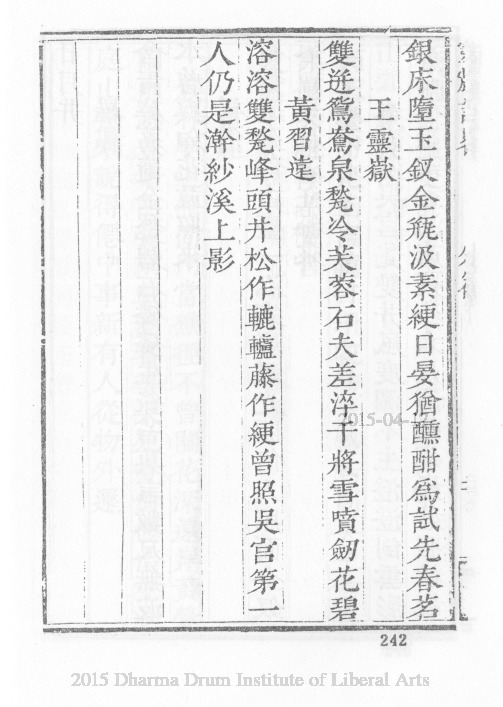 銀床墮玉釵金瓶汲素綆日晏猶醺酣爲試先春茗
王靈嶽
雙迸鴛鴦泉甃冷芙蓉石夫差淬干將雪噴劒花碧
黃習遠
溶溶雙甃峰頭井松作轆轤藤作綆曾照吳宮第一
人仍是澣紗溪上影
2015-04-17
242
2015 Dharma Drum Institute of Liberal Arts